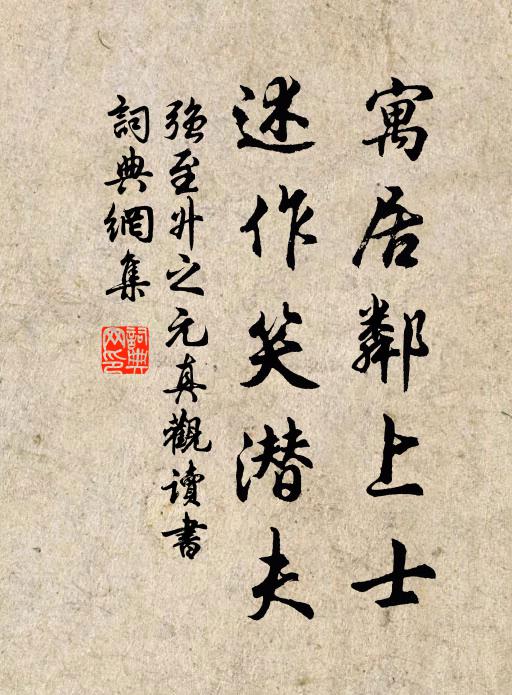 寓居鄰上士
述作笑潜夫
強至升之元真觀讀書
詞典網集
詞典网印